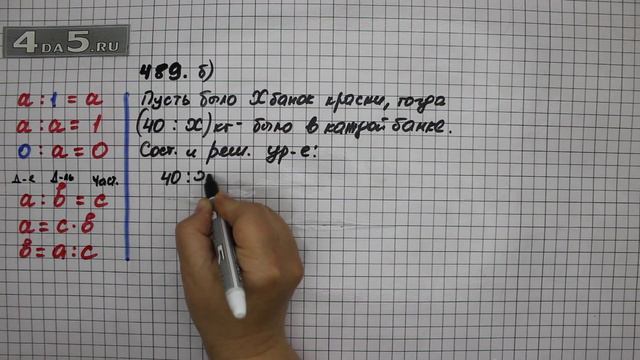 4DA5.RU
489. б)
a : 1 = a
a : a = 1
0 : a = 0
Д-е Д-ль Част.
a : b = c
a = c · b
b = a : c
Пусть было X банок краски, тогда
(40 : X) кг - было в каждой банке.
Сост. и реш. ур-е:
40 : X